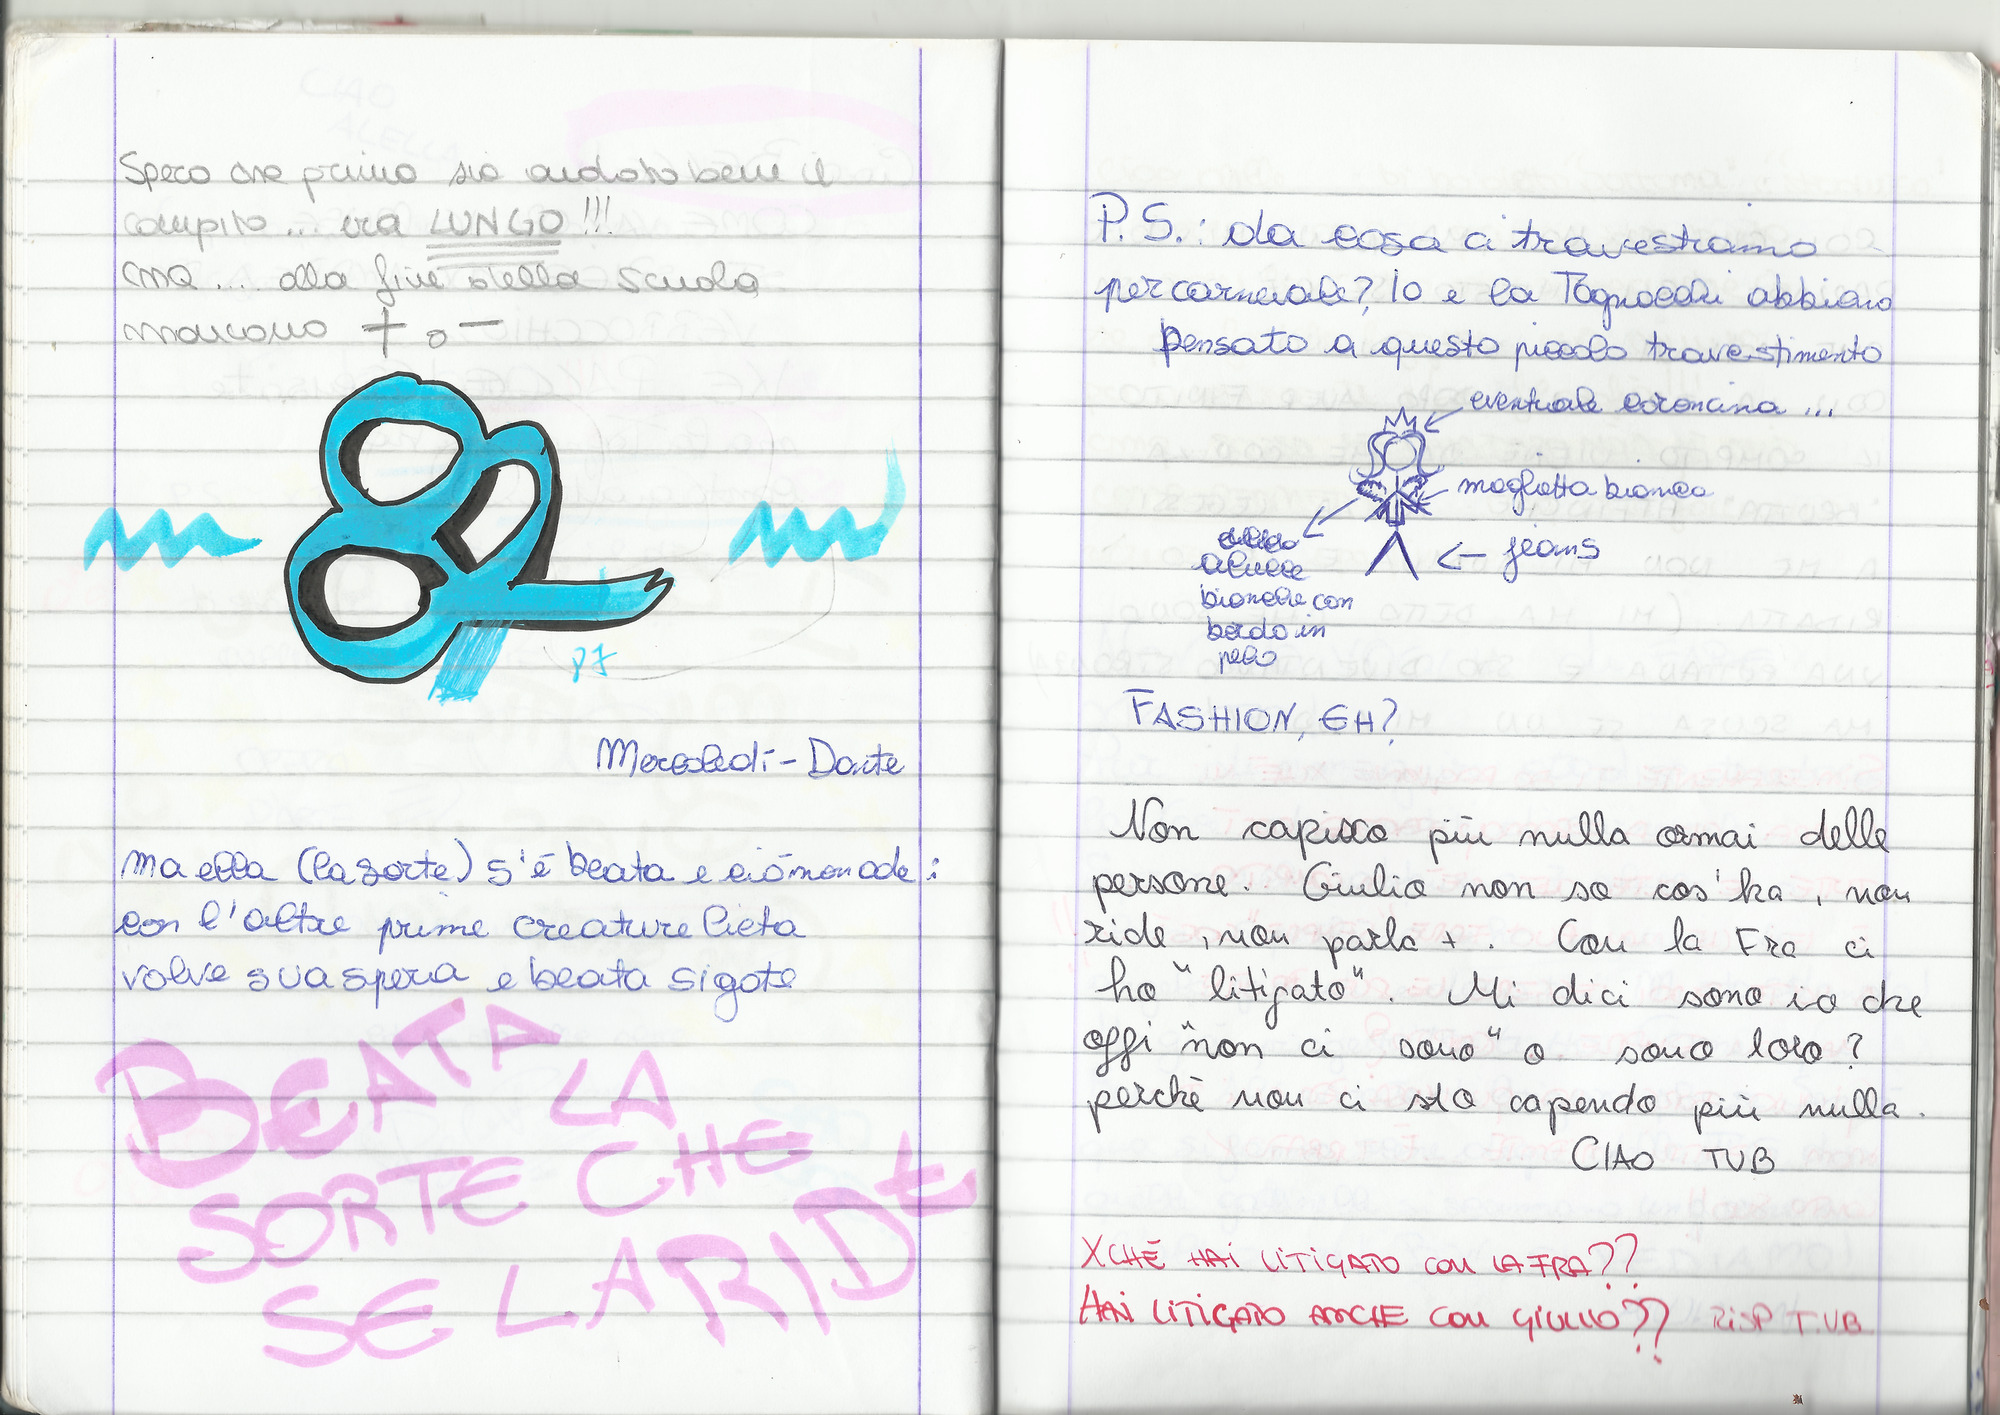 Spero che prima sia andato bene il
compito... era LUNGO!!!
CMQ... alla fine della scuola
mancano + o -
82
gg
Mercoledì - Dante
Ma ella (la sorte) s'è beata e ciò non ode:
con l'altre prime creature lieta
volve sua spera e beata si gode
BEATA LA
SORTE CHE
SE LA RIDE
P.S.: da cosa ci travestiamo
per carnevale? Io e la Tognocchi abbiamo
pensato a questo piccolo travestimento
eventuale coroncina ...
maglietta bianca
alucce
bianche con
bordo in
pelo
jeans
FASHION, EH?
Non capisco più nulla ormai delle
persone. Giulio non so cos'ha, non
ride, non parla +. Con la Fra ci
ho "litigato". Mi dici sono io che
oggi "non ci sono" o sono loro?
perchè non ci sto capendo più nulla.
CIAO TVB
XCHÉ HAI LITIGATO CON LA FRA??
HAI LITIGATO ANCHE CON GIULIO?? RISP T.V.B.